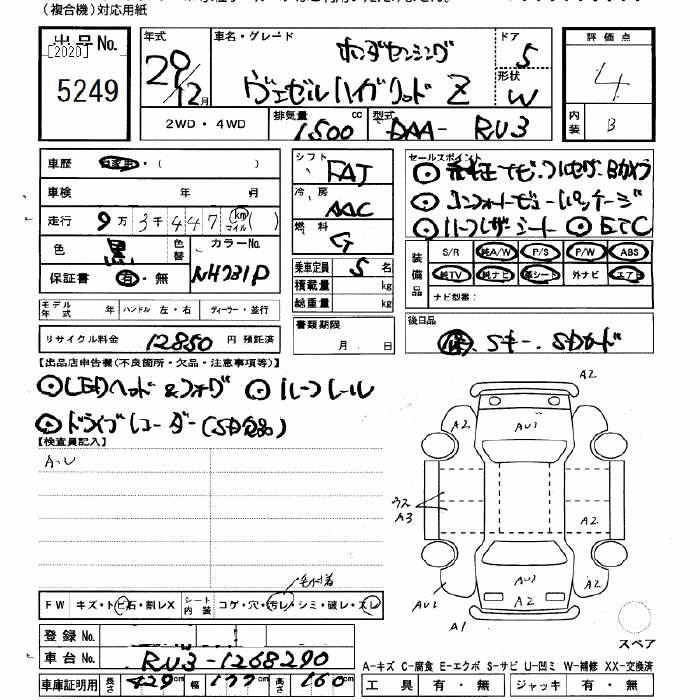 (複合機)対応用紙
出品No. [2020] 5249
年式 29/12月
車名・グレード ホンダセンシング
ヴェゼルハイブリッド Z
ドア 5
形状 W
評価点 4
内装 B
2WD・4WD 排気量 1500 cc 型式 DAA- RU3
車歴 自家用・( )
車検 年 月
走行 9万3千447 (km マイル)( )
色 黒 色替 カラーNo. NH731P
保証書 有・無
モデル年式 年 ハンドル 左・右 ディーラー・並行
リサイクル料金 12850 円 預託済
シフト FAT
冷房 AAC
燃料 G
乗車定員 5 名
積載量 kg
総重量 kg
書類期限 月 日
セールスポイント
◎ 純正ナビ・フルセグ・Bカメラ
◎ コンフォートビューパッケージ
◎ ハーフレザーシート ◎ ETC
装備品 S/R 純A/W P/S P/W ABS
純TV 純ナビ 革シート 外ナビ エアB
ナビ型番:
後日品
(保)、Sキー、SDカード
【出品店申告欄(不良箇所・欠品・注意事項等)】
◎ LEDヘッド&フォグ ◎ ルーフレール
◎ ドライブレコーダー(SD欠品)
【検査員記入】
A・U
FW キズ・トビ石・割レX シート内装 コゲ・穴・汚レ・シミ・破レ・スレ
登録No.
車台No. RU3-1268290
車庫証明用 長さ 429 cm 幅 177 cm 高さ 160 cm
A2
A2 AU1 A2
ウス A3
A2
AU1 AU1 A2 A2
A1
スペア
A-キズ C-腐食 E-エクボ S-サビ U-凹ミ W-補修 XX-交換済
工具 有・無 ジャッキ 有・無